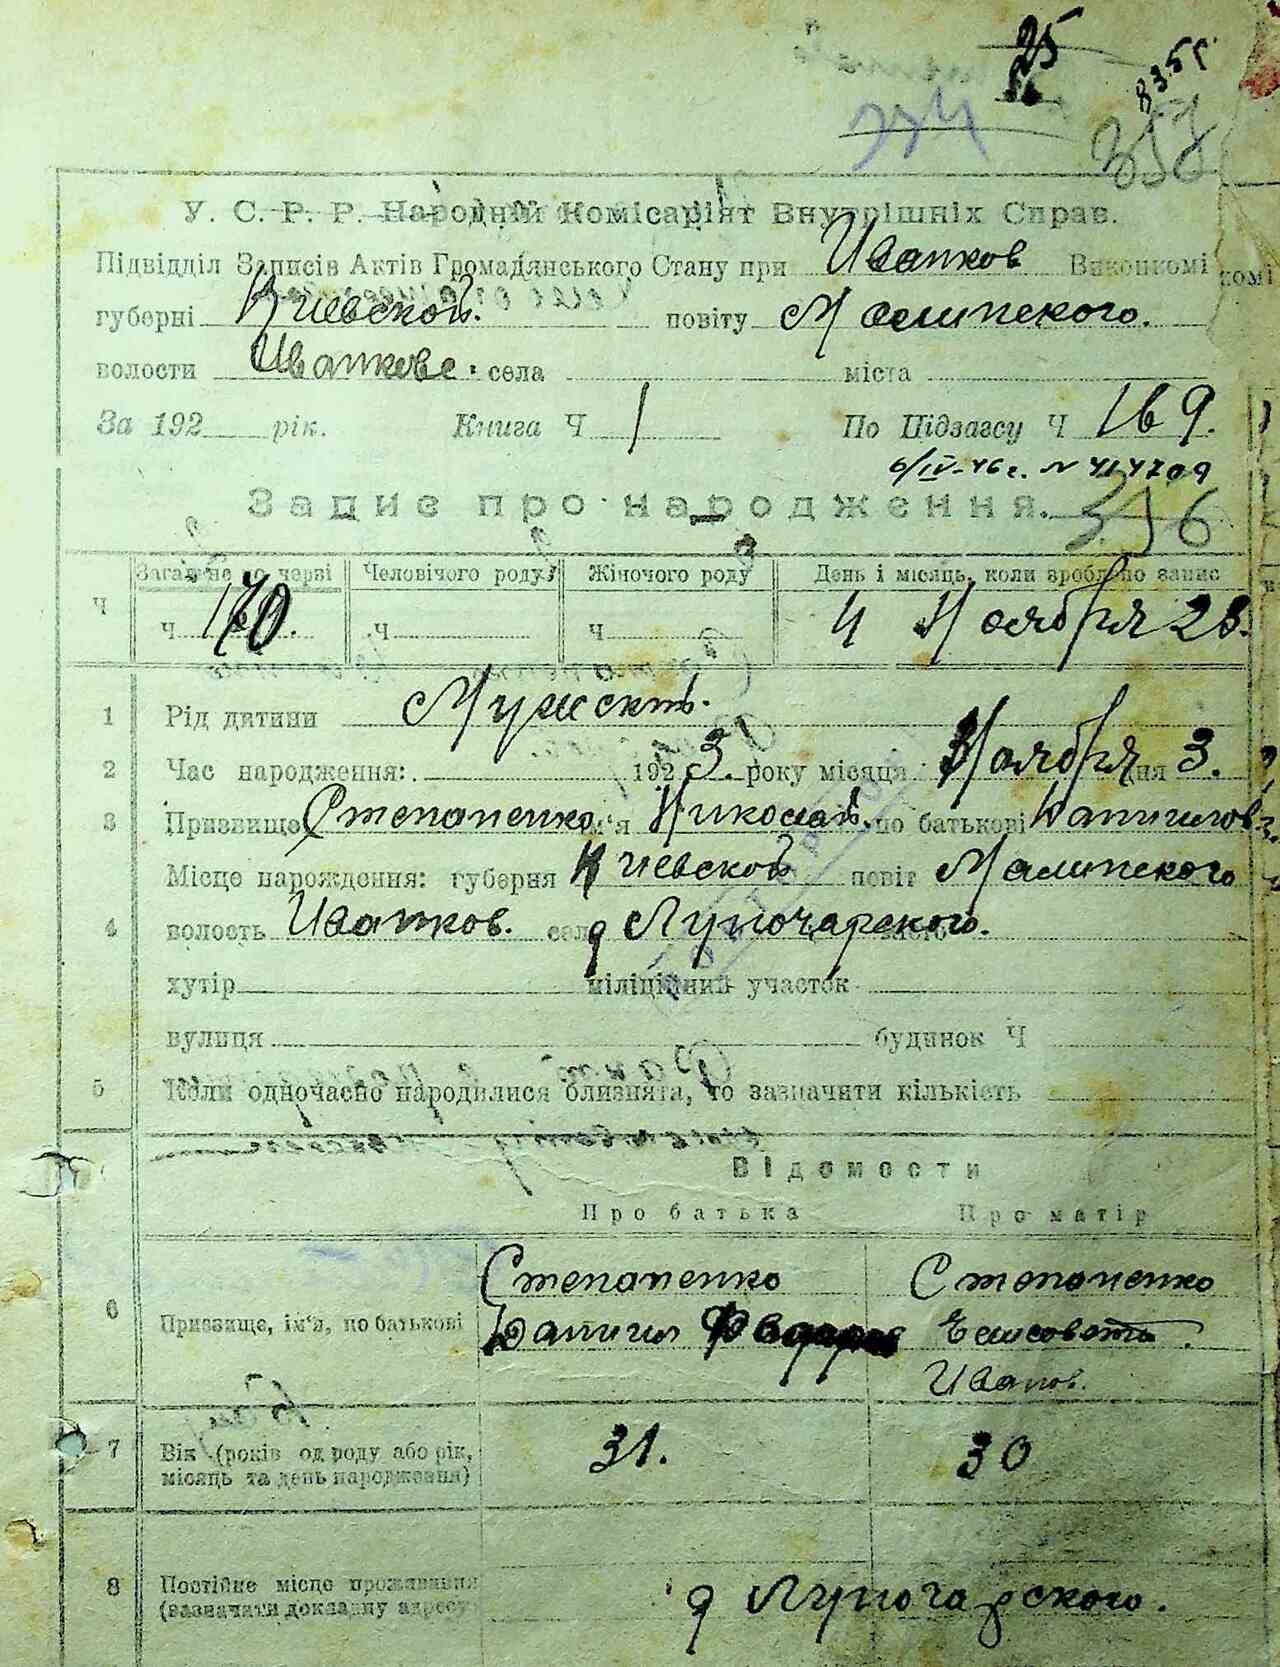 25
835 г.
274
357
У. С. Р. Р. Народній Комісаріят Внутрішніх Справ.
Підвідділ Записів Актів Громадянського Стану при Иванков Виконкомі
губерні Киевской. повіту Малинского.
волости Иванкове. села міста
За 192 рік. Книга Ч 1 По Підзагсу Ч 169.
6/IV-46 г. N 414709
Запис про народження. 356
Загальне по черзі Человічого роду Жіночого роду День і місяць, коли зроблено запис
Ч Ч 170. Ч Ч 4 Ноября 23.
1 Рід дитини Мужскть.
2 Час народження: 192 3. року місяця Ноября дня 3.
3 Призвище Степаненко ім'я Николай, по батькові Данилов
Місце народження: губерня Киевской повіт Малинского
4 волость Иванков. село д Луночарского.
хутір міліційний участок
вулиця будинок Ч
5 Коли одночасно народилися близнята, то зазначити кількість
Відомости
Про батька Про матір
Степаненко Степаненко
6 Призвище, ім'я, по батькові Данил Елисовета.
Иванов.
7 Вік (років од роду або рік, 31. 30
місяць та день народження)
8 Постійне місце проживання д Луночарского.
(зазначати докладну адресу